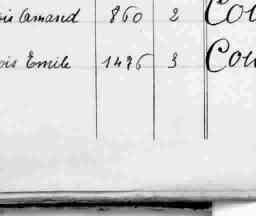 ois Amand 860 2 Cou
ois Emile 1476 3 Cou